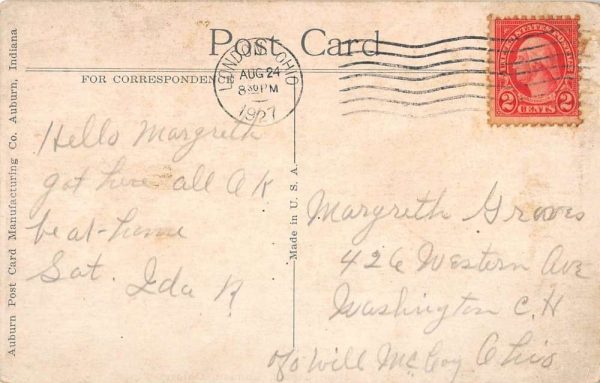 Post Card
FOR CORRESPONDENCE
LONDON, OHIO
AUG 24
8 30 PM
1927
UNITED STATES POSTAGE
2 CENTS 2
Hello Margreth
got here all O K
be at-home
Sat. Ida R
Margreth Groves
426 Western Ave
Washington C. H
c/o Will McCoy Ohio
Made in U. S. A.
Auburn Post Card Manufacturing Co. Auburn, Indiana